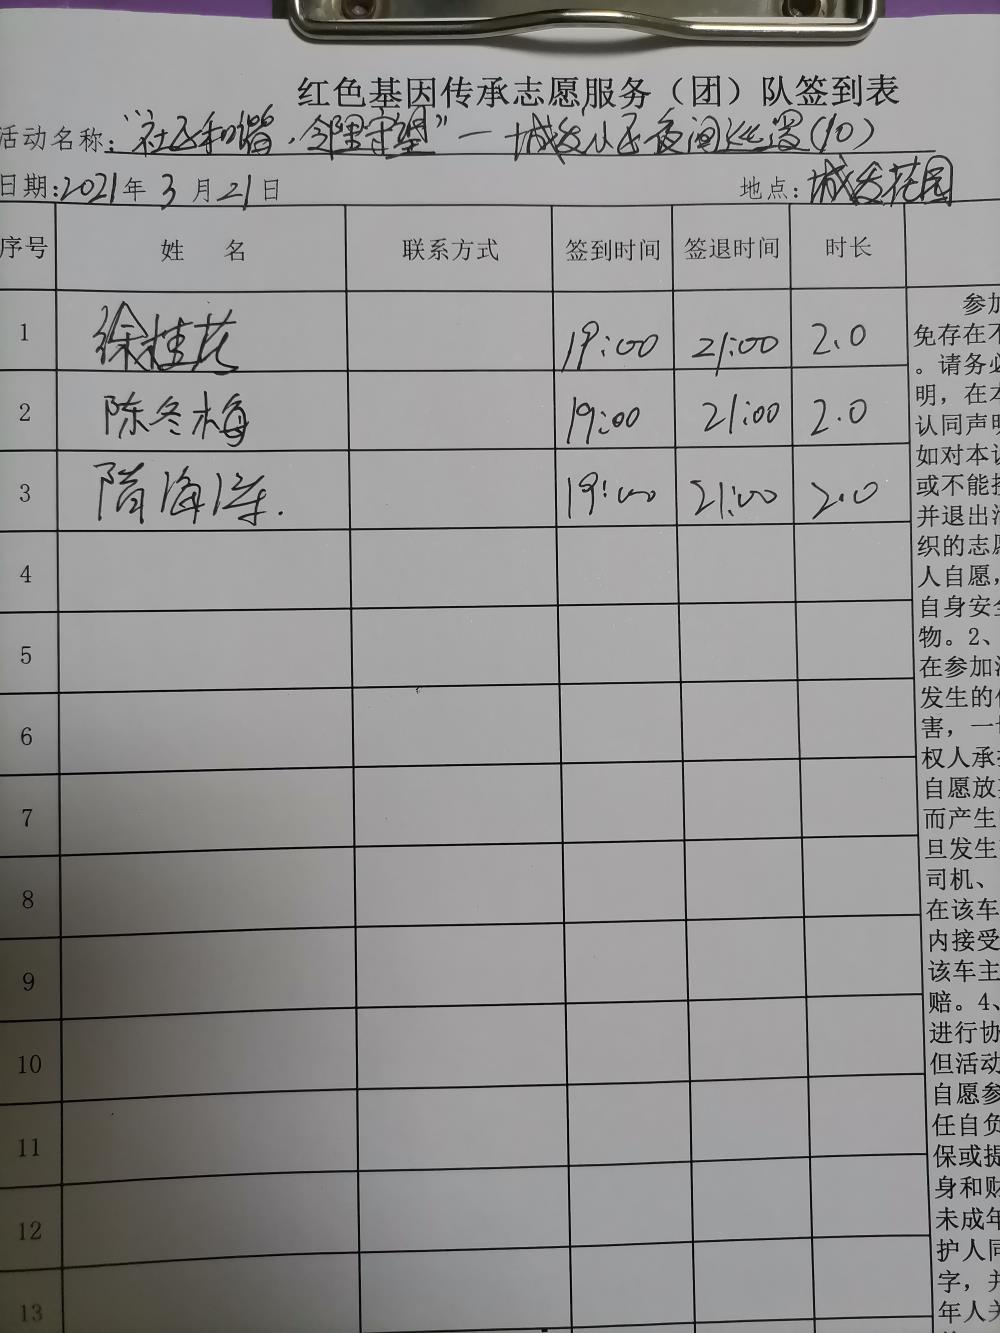 红色基因传承志愿服务（团）队签到表
活动名称："社区和谐，邻里守望"—城发小区夜间巡逻(10)
日期:2021年3月21日 地点:城发花园
序号 姓 名 联系方式 签到时间 签退时间 时长
1 徐桂花 19:00 21:00 2.0
2 陈冬梅 19:00 21:00 2.0
3 隋海 19:00 21:00 2.0
4
5
6
7
8
9
10
11
12
13
参加
免存在不
。请务必
明，在本
认同声明
如对本认
或不能接
并退出活
织的志愿
人自愿，
自身安全
物。2、
在参加活
发生的
害，一切
权人承担
自愿放弃
而产生
旦发生
司机、
在该车
内接受
该车主
赔。4、
进行协
但活动
自愿参
任自负
保或提
身和财
未成年
护人同
字，并
年人关